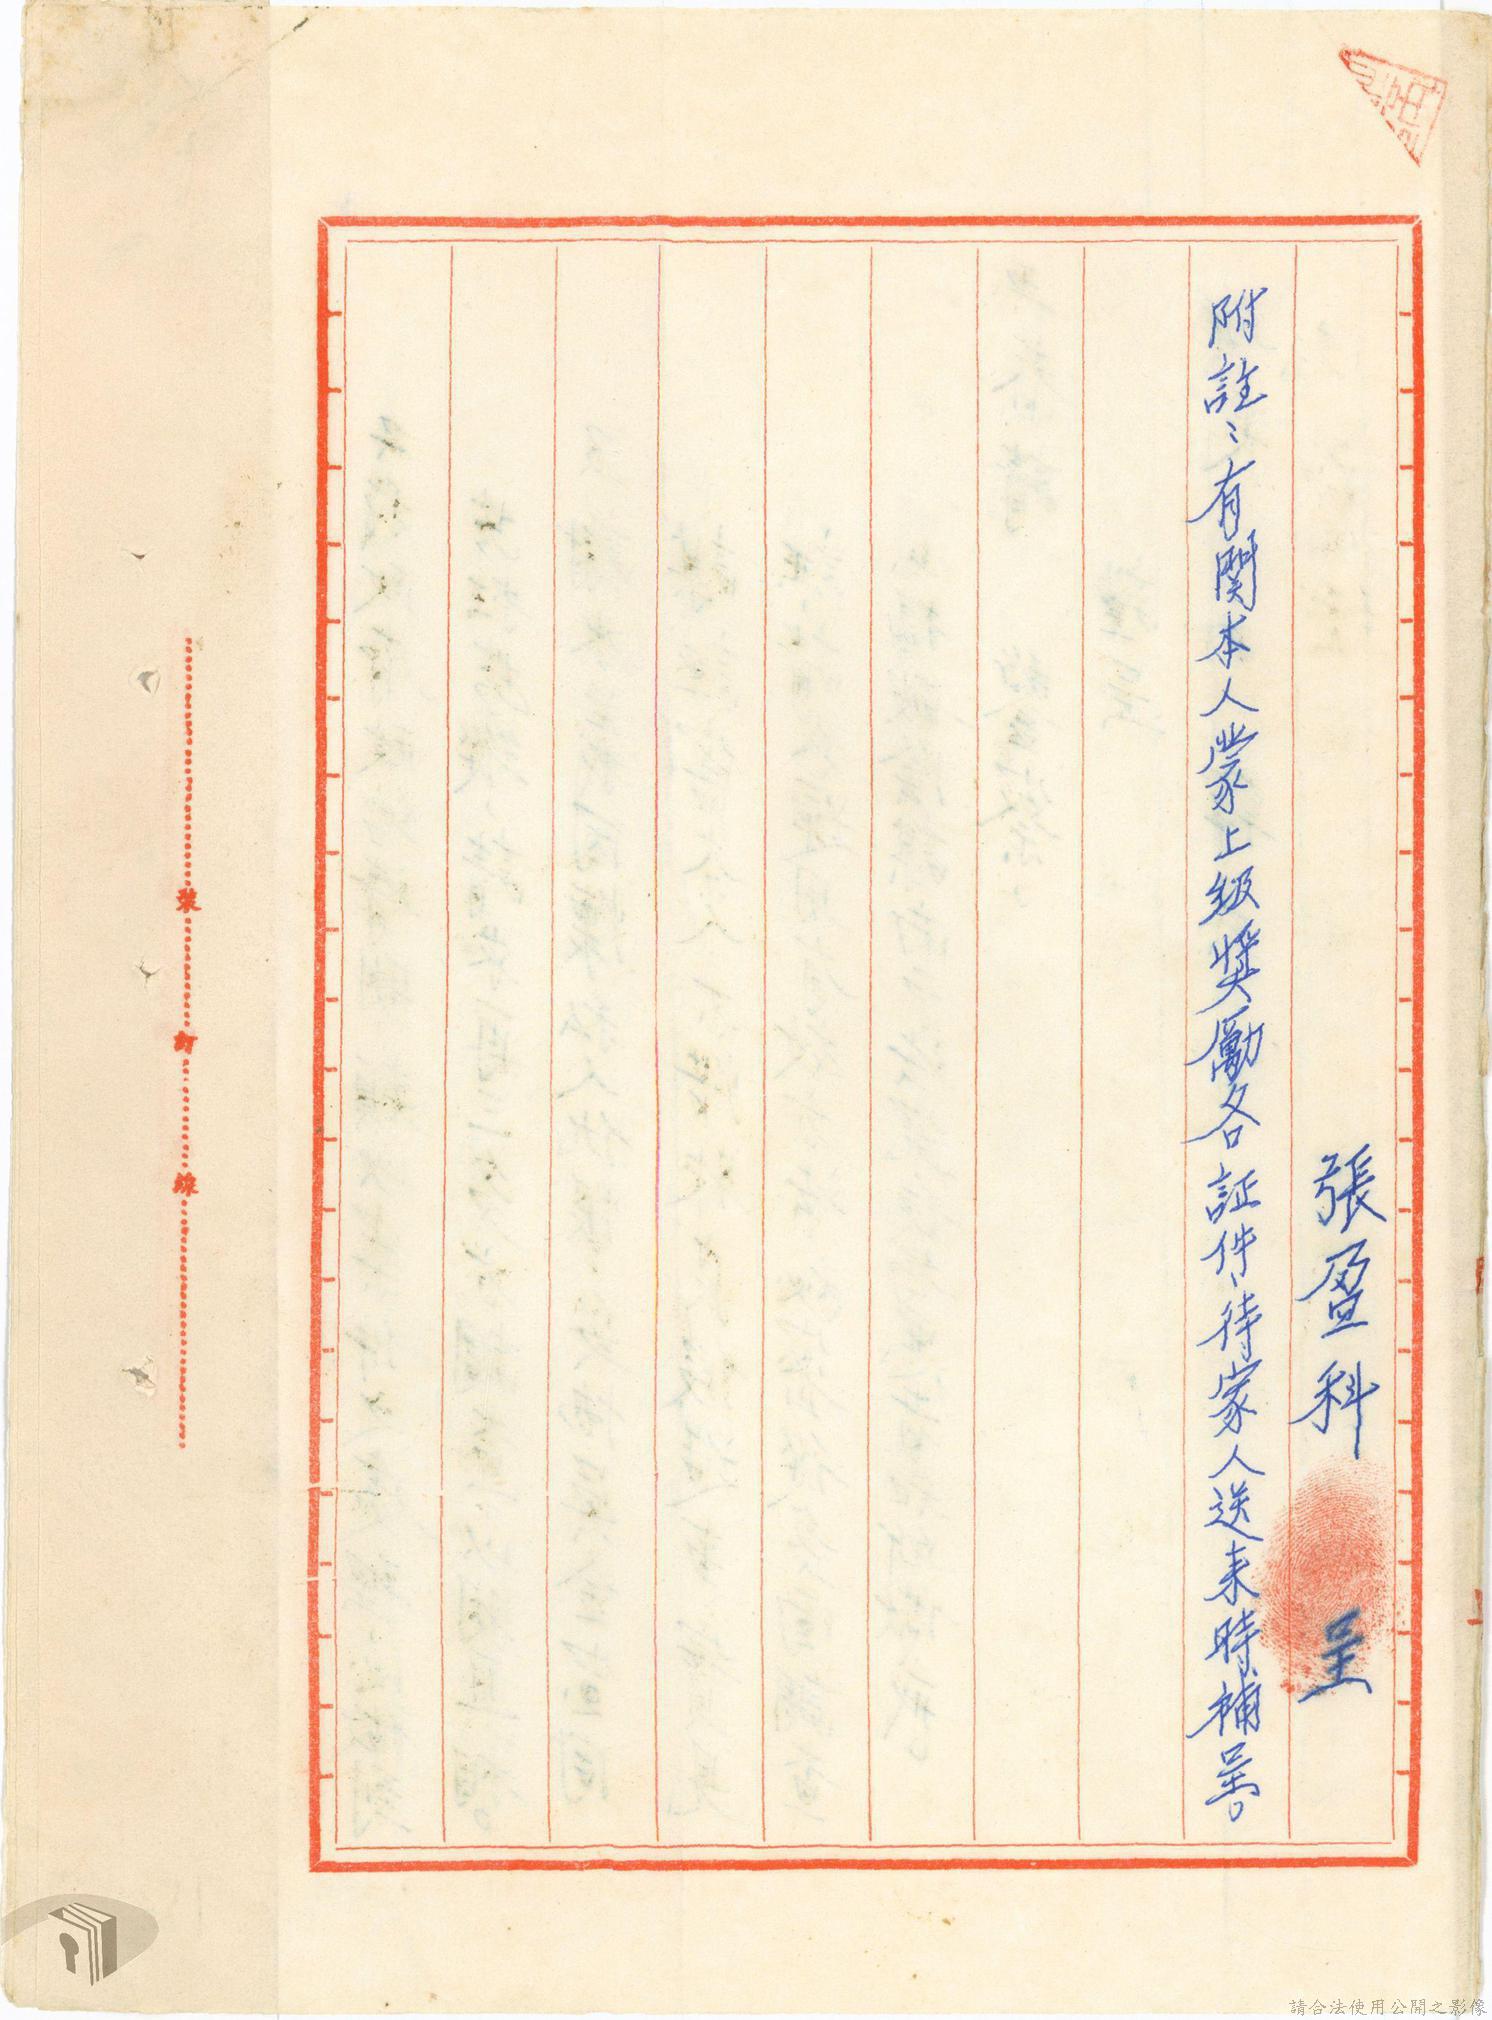 張盈科 呈
附註：有関本人蒙上級獎勵各証件、待家人送来時補呈。
裝訂線
請合法使用公開之影像